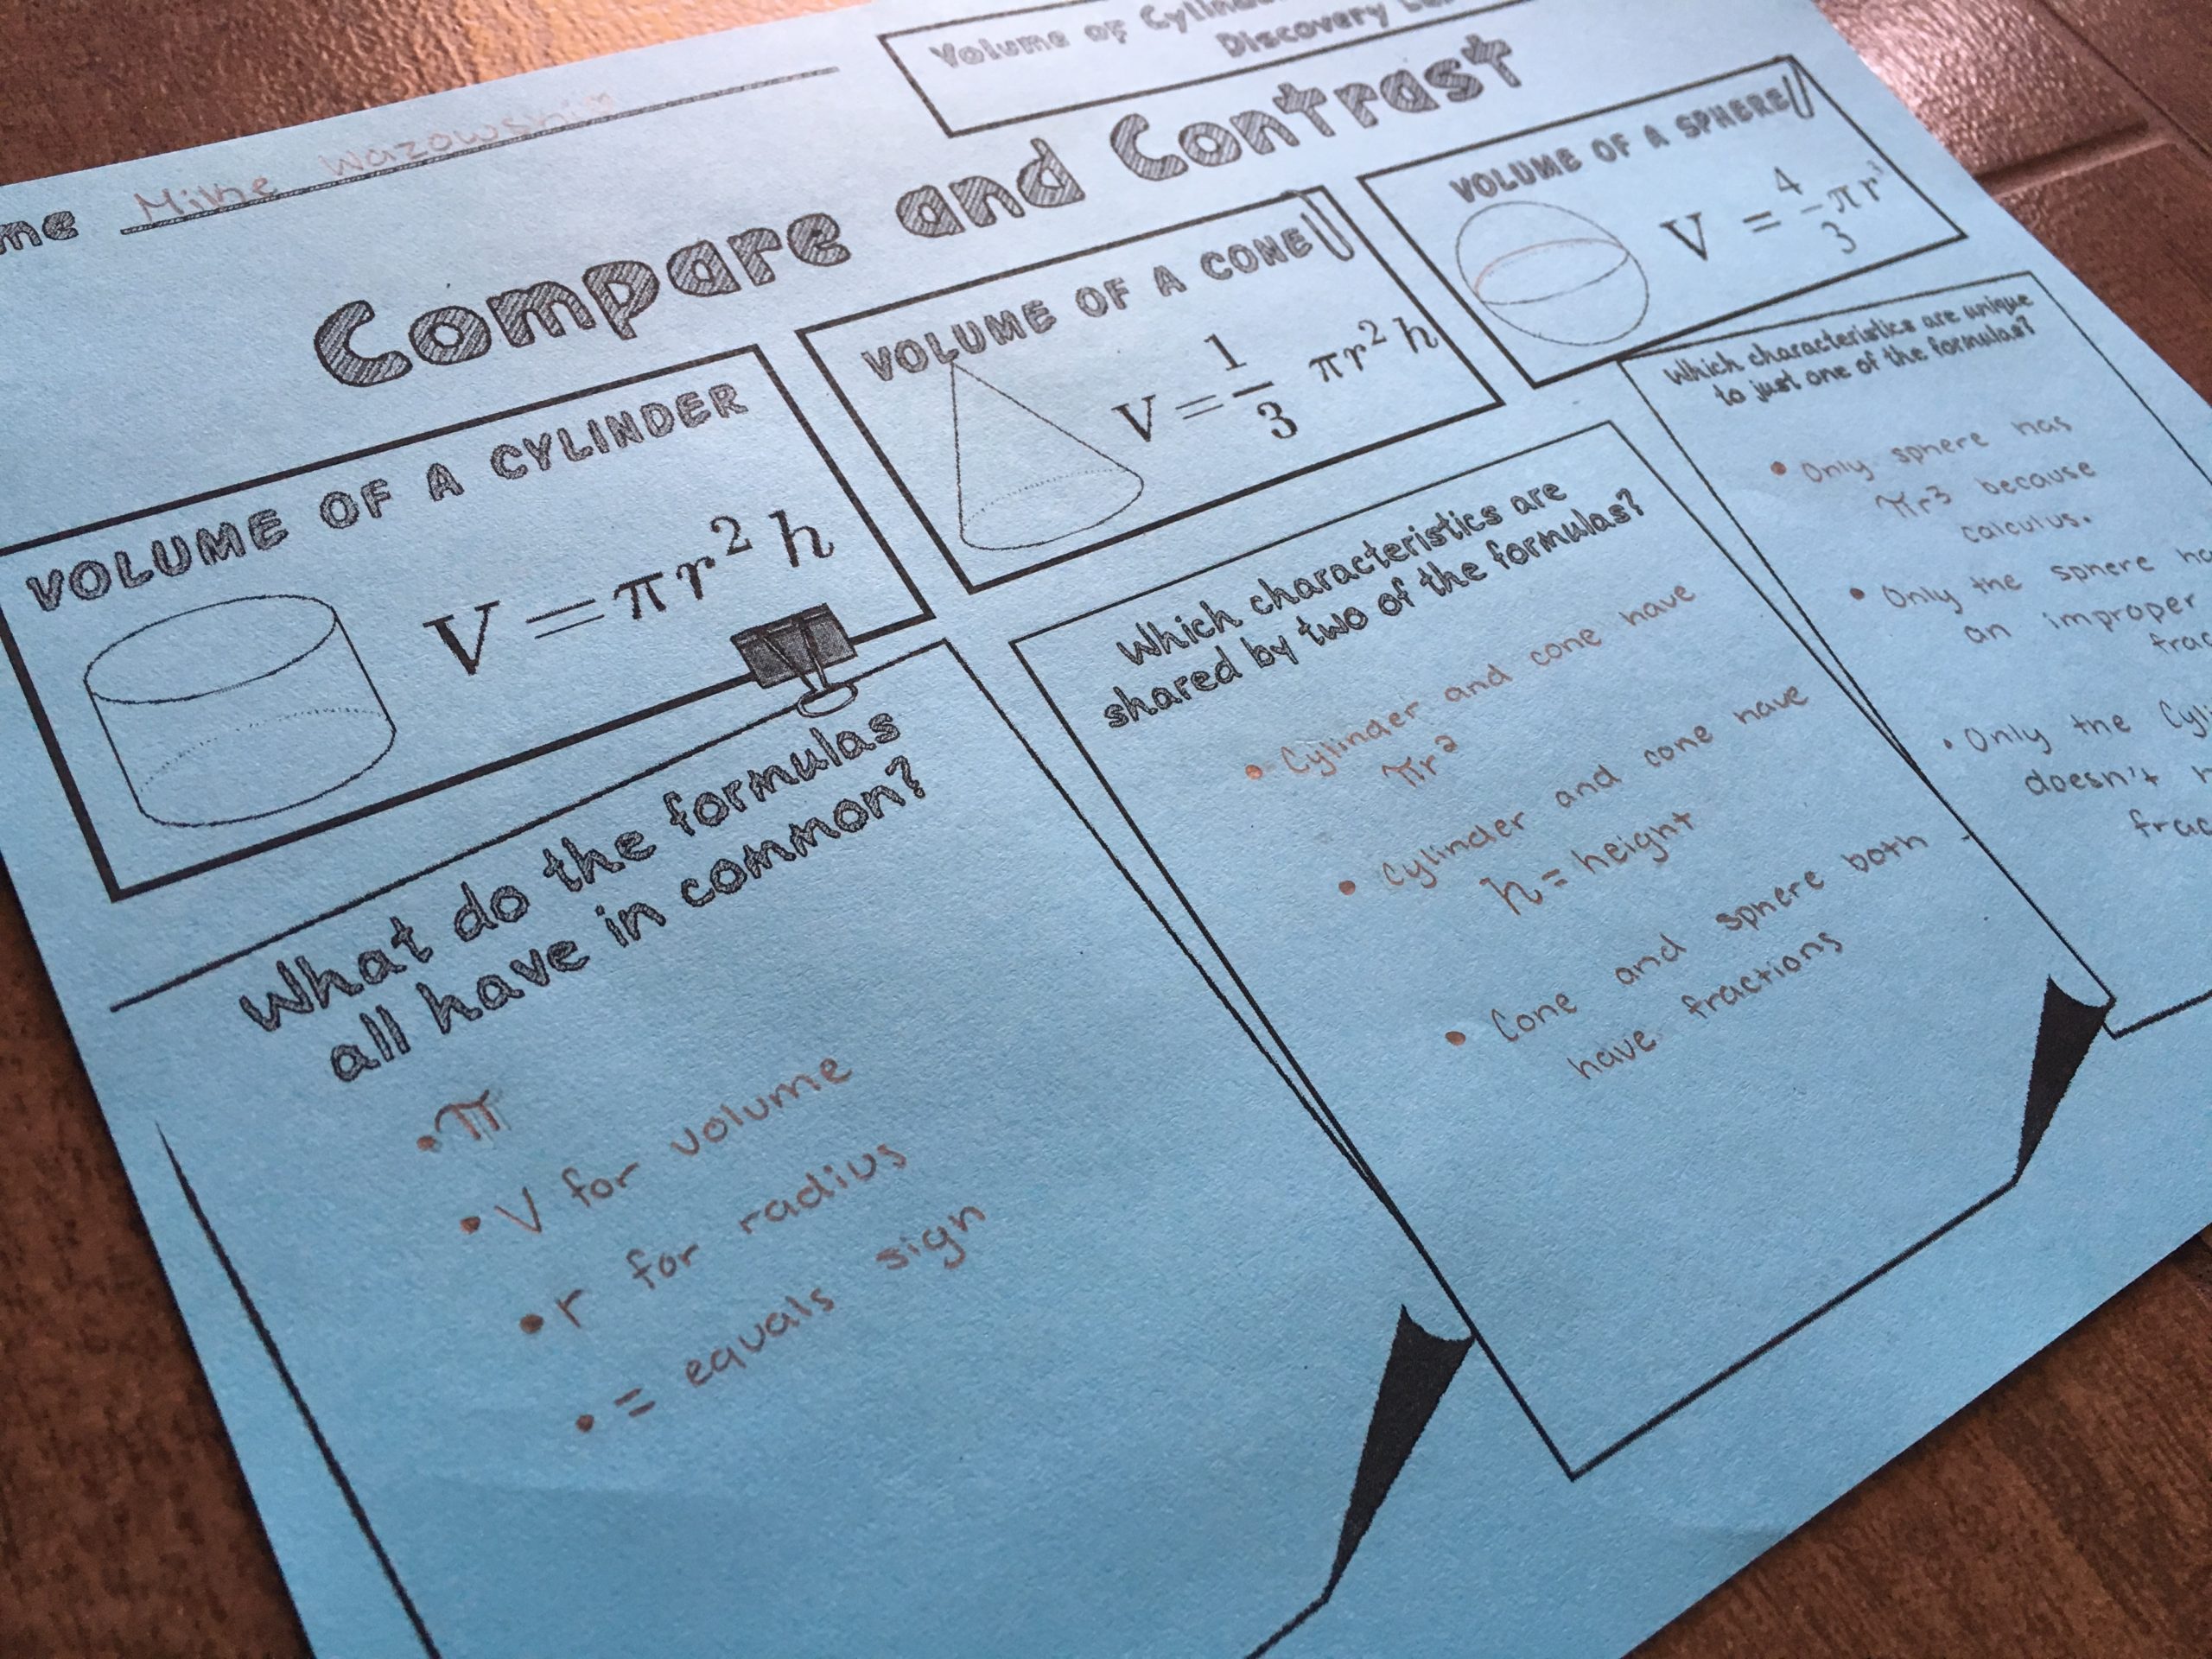 me Mike Wazowski
Volume of
Discovery
Compare and Contrast
VOLUME OF A CYLINDER
V = πr² h
VOLUME OF A CONE
V = 1/3 πr² h
VOLUME OF A SPHERE
V = 4/3 πr³
What do the formulas
all have in common?
• π
• V for volume
• r for radius
• = equals sign
Which characteristics are
shared by two of the formulas?
• Cylinder and cone have
πr²
• Cylinder and cone have
h = height
• Cone and sphere both
have fractions
Which characteristics are unique
to just one of the formulas?
• Only sphere has
πr³ because
calculus.
• Only the sphere ha
an improper
frac
• Only the Cyli
doesn't h
frac